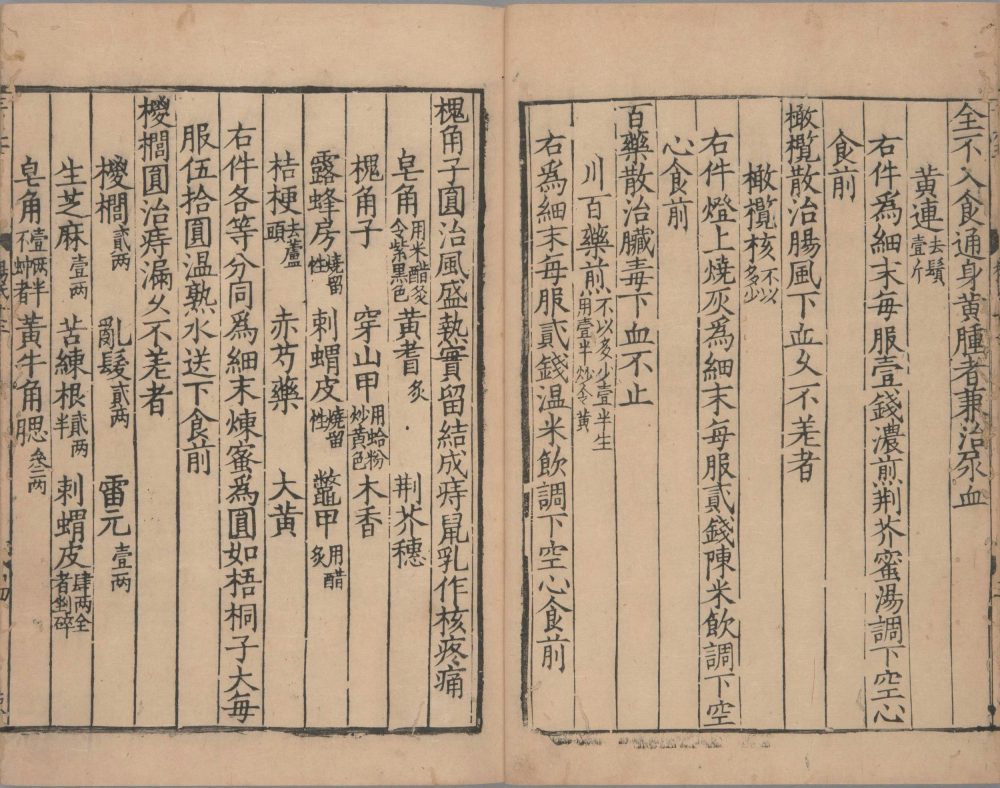 全不入食通身黄腫者兼治尿血
黄連去鬚壹斤
右件爲細末每服壹錢濃煎荆芥蜜湯調下空心
食前
橄欖散治腸風下血久不差者
橄欖核不以多少
右件燈上燒灰爲細末每服貳錢陳米飲調下空
心食前
百藥散治臟毒下血不止
川百藥煎不以多少壹半生用壹半炒令黄
右爲細末每服貳錢温米飲調下空心食前
槐角子圓治風盛熱實留結成痔鼠乳作核疼痛
皂角用米醋炙令紫黑色 黄耆炙 荆芥穗
槐角子 穿山甲用蛤粉炒黄色 木香
露蜂房燒留性 刺蝟皮燒留性 鼈甲用醋炙
桔梗去蘆頭 赤芍藥 大黄
右件各等分同爲細末煉蜜爲圓如梧桐子大每
服伍拾圓温熟水送下食前
椶櫚圓治痔漏久不差者
椶櫚貳兩 亂髮貳兩 雷元壹兩
生芝麻壹兩 苦練根貳兩半 刺蝟皮肆兩全者剉碎
皂角壹兩半不蚛者 黄牛角腮叁兩